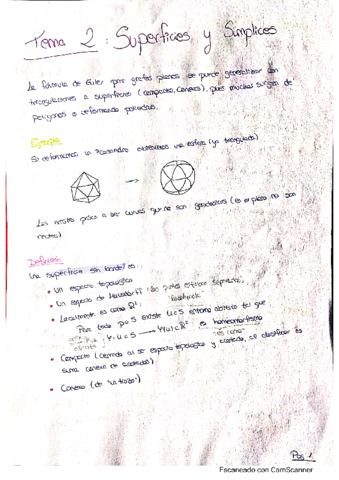 Tema 2: Superficies y Símplices
La fórmula de Euler para grafos planos se puede generalizar con
triangulaciones a superficies (compactas, conexas), pues muchas surgen de
polígonos o deformando poliedros.
Ejemplo
Si deformamos un icosaedro obtenemos una esfera (ya triangulada)
Las aristas pasan a ser curvas que no son geodésicas (en el plano no son
rectas).
Definición
Una superficie sin borde es:
• Un espacio topológico
• Un espacio de Hausdorff
• Localmente es como ℝ²:
Para todo p∈S existe U⊂S entorno abierto tal que
es homeomorfismo
• Compacto (cerrado al ser espacio topológico y acotado,
suma conexa de
• Conexo (de "un trozo")
Pág 1
Escaneado con CamScanner